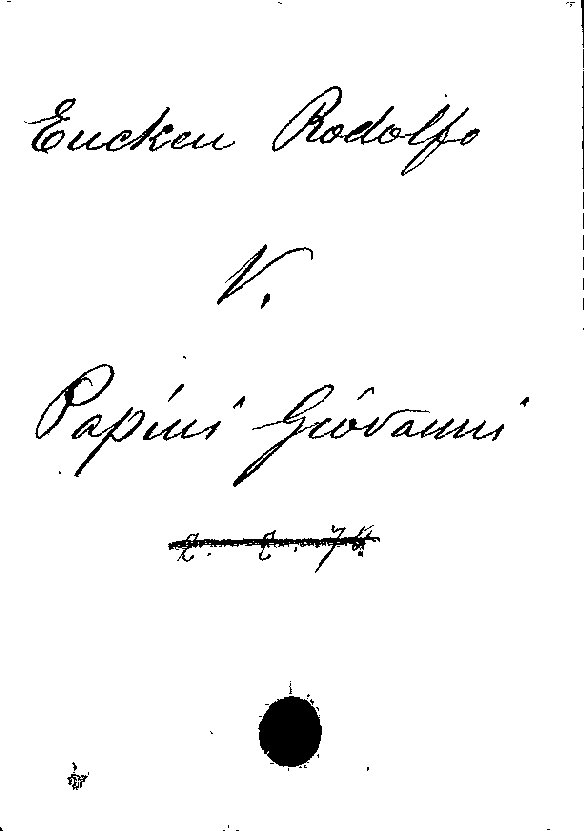 Eucken Rodolfo
V.
Papini Giovanni